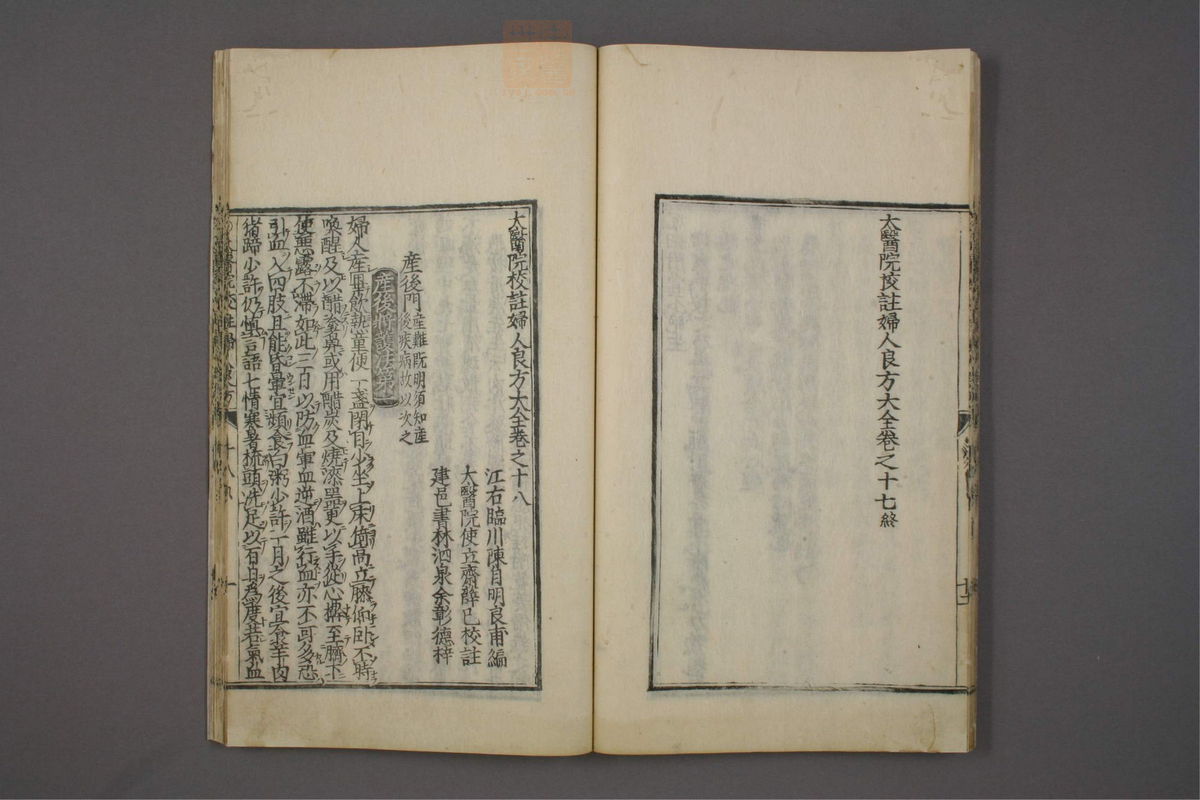 太醫院校註婦人良方大全卷之十七終
太醫院校註婦人良方大全卷之十八
江右臨川陳自明良甫編
太醫院使立齋薛已校註
建邑書林泗泉余彰德梓
産後門産難既明須知産
後疾病故以次之
産後將護法第一
婦人産畢飲熱童便一盞閉目少坐上床倚高立膝仰卧不時
喚醒及以醋塗鼻或用醋炭及燒漆器更以手從心擀至臍下
使惡露不滯如此三日以防血暈血逆酒雖行血亦不可多恐
引血入四肢且能昏暈宜頻食白粥少許一月之後宜食羊肉
猪蹄少許仍慎言語七情寒暑梳頭洗足以百日為度若氣血